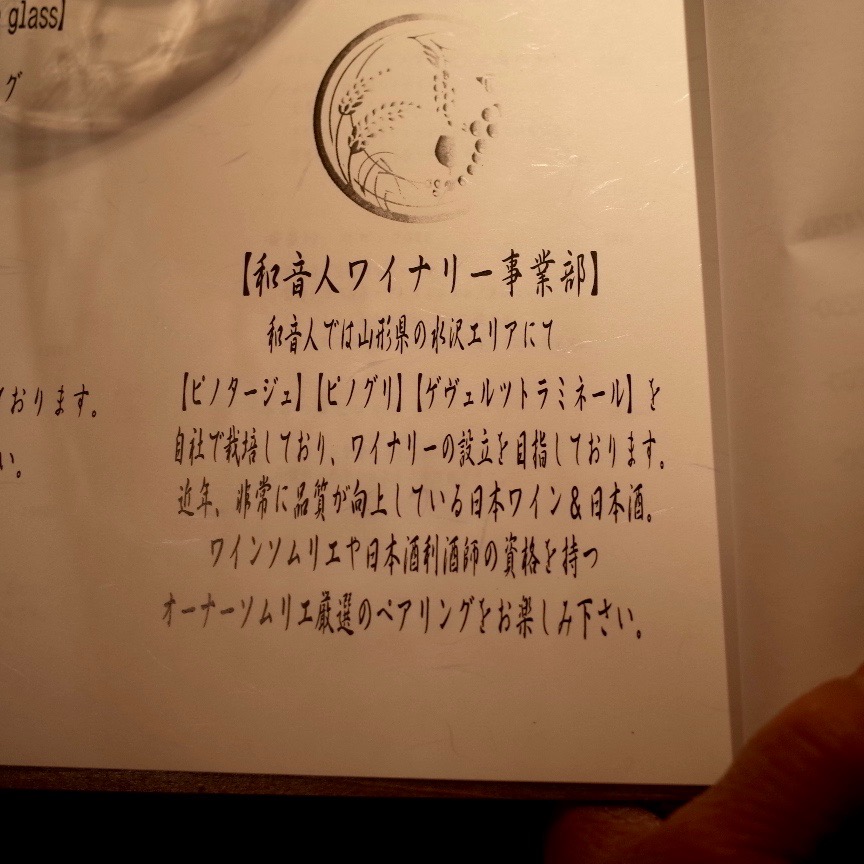 glass】
グ
【和音人ワイナリー事業部】
和音人では山形県の水沢エリアにて
【ピノタージュ】【ピノグリ】【ゲヴェルツトラミネール】を
ております。
自社で栽培しており、ワイナリーの設立を目指しております。
い。
近年、非常に品質が向上している日本ワイン&日本酒。
ワインソムリエや日本酒利酒師の資格を持つ
オーナーソムリエ厳選のペアリングをお楽しみ下さい。